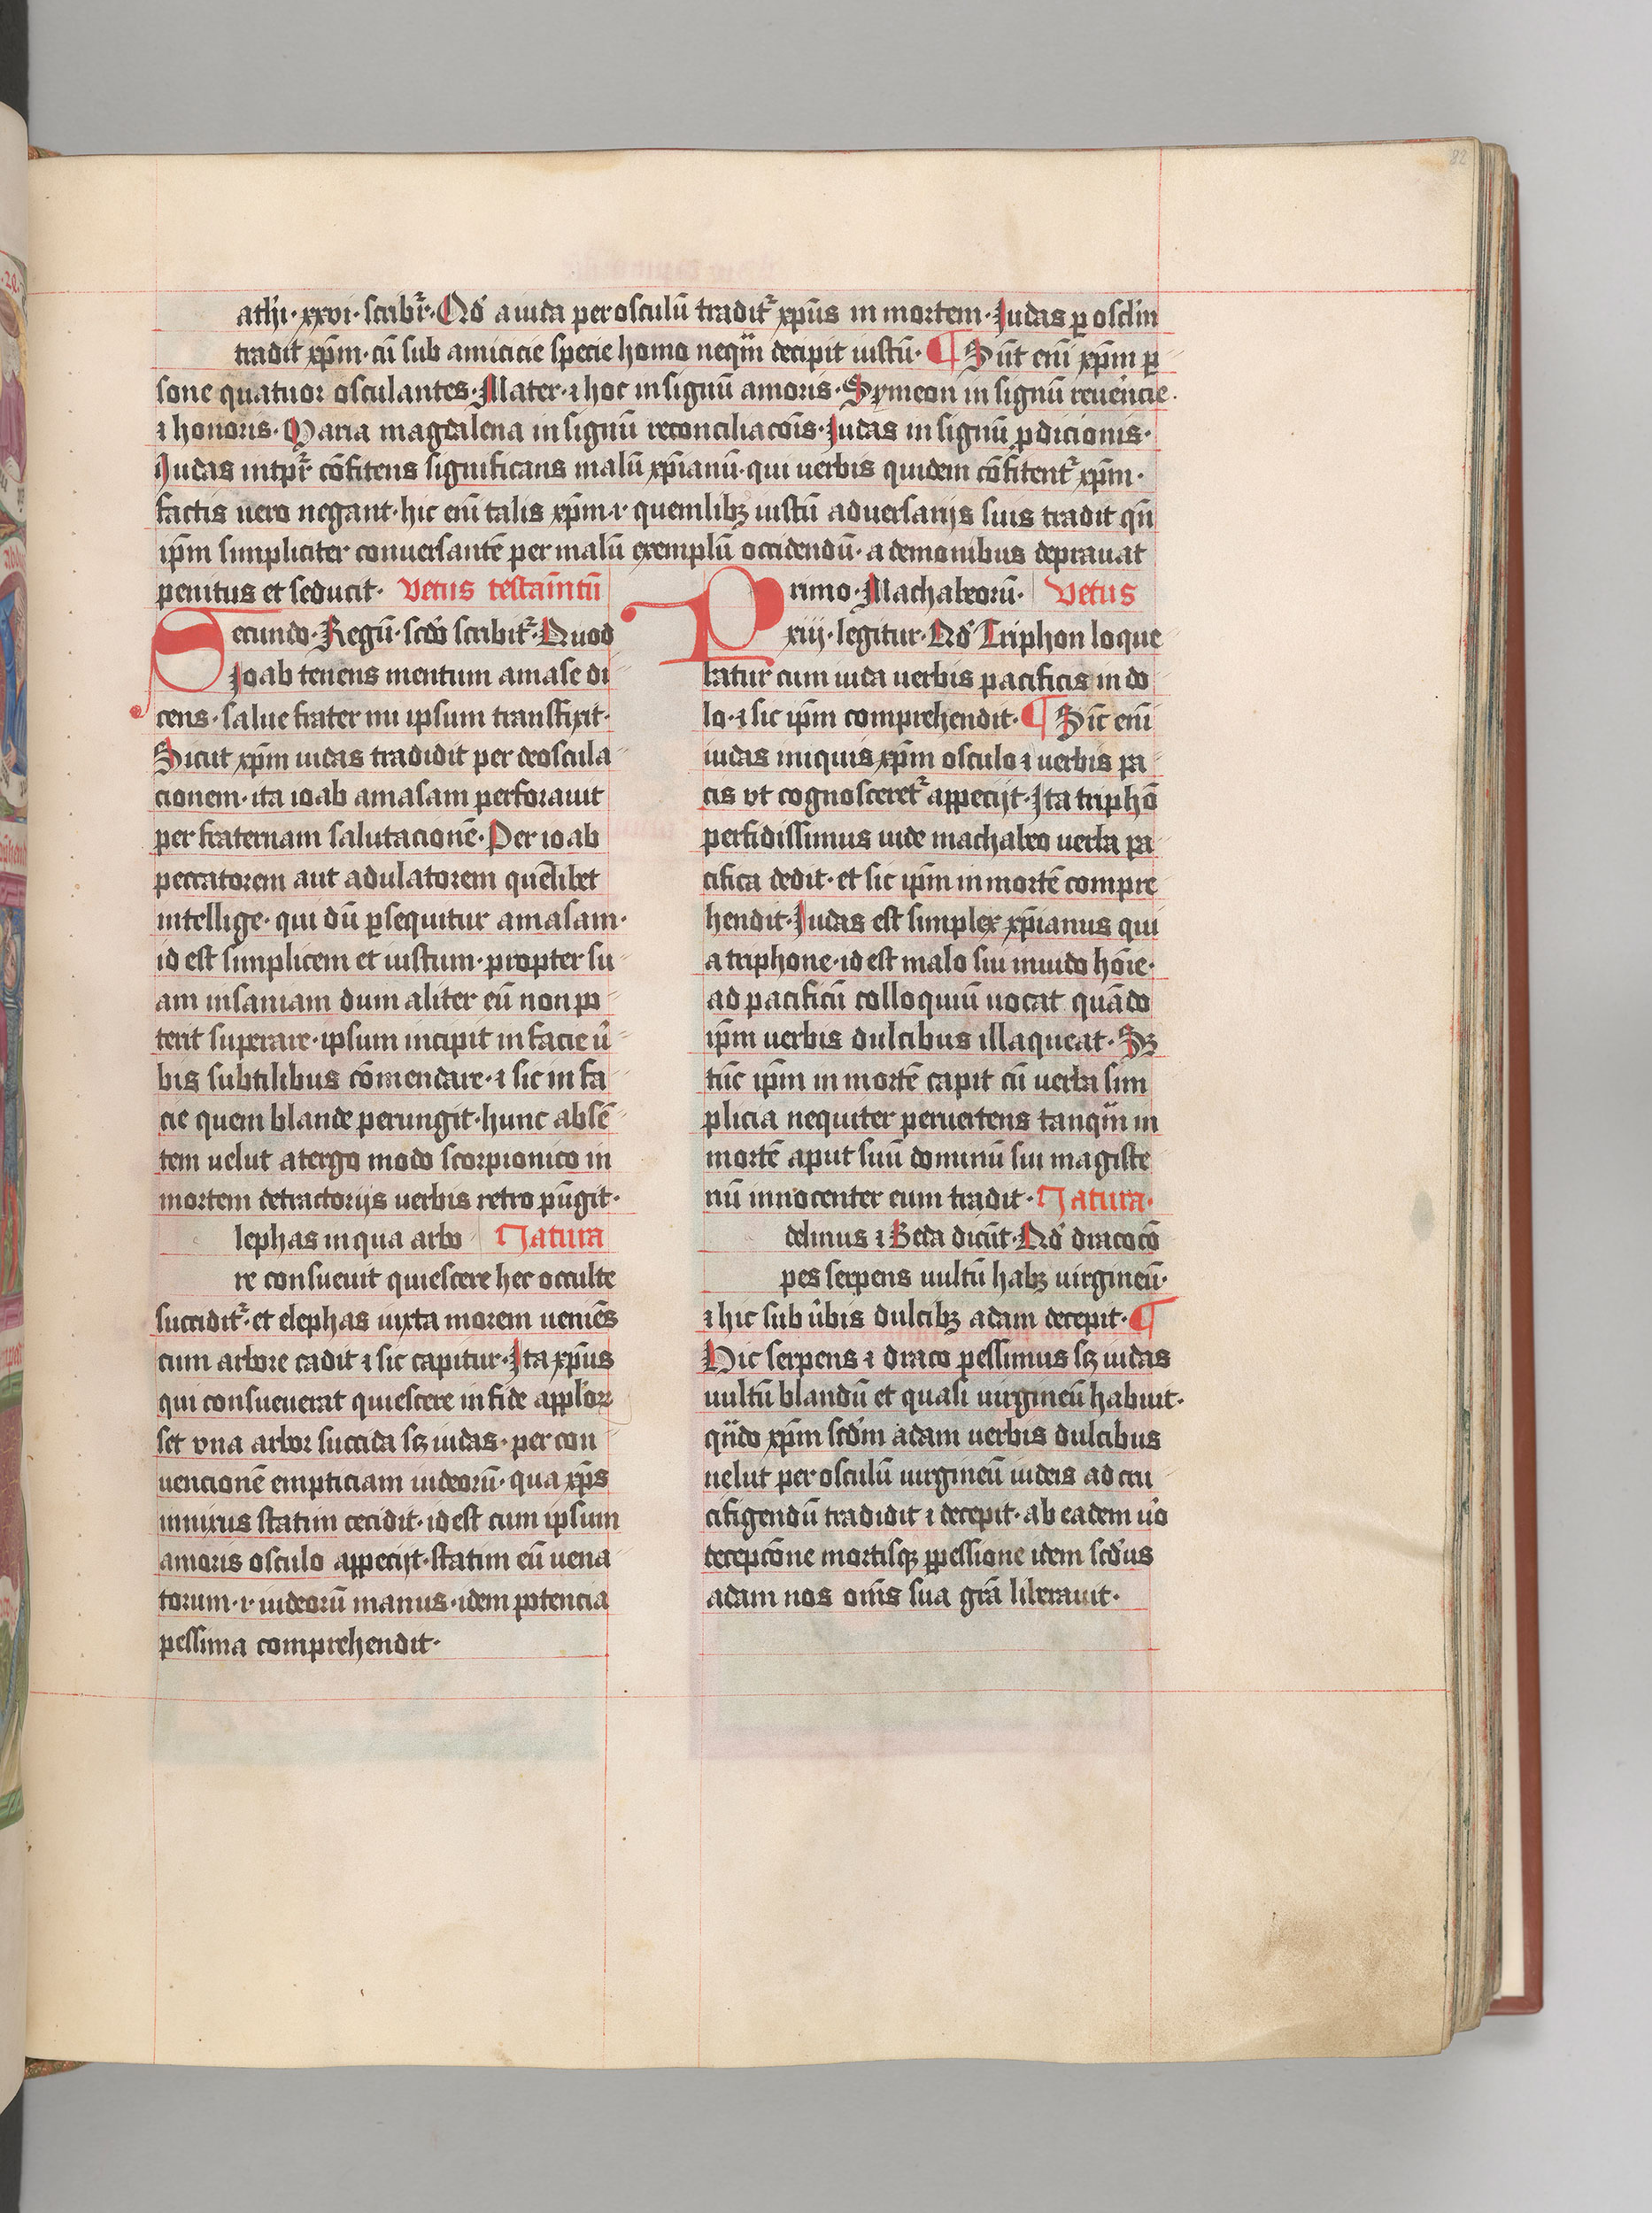 82
athi · xxvi · scribr̄ · Qd' a iuda per osculū tradit᷑ xp̄us in mortem · Judas ꝑ oscl'm
tradit xp̄m · cū sub amicicie specie homo neqm̄ decipit iustū · ¶ Sūt enī xp̄m ꝑ
sone quatuor osculantes · Mater · ⁊ hoc in signū amoris · Symeon in signū reuēncie ·
⁊ honoris · Maria magdalena in signū reconciliacōis · Judas in signū ꝑdicionis ·
Judas intpr̄ cōfitens significans malū xp̄ianū · qui uerbis quidem cōfitent᷑ xp̄m ·
factis uero negant · hic enī talis xp̄m · i · quemlibꝫ iustū aduersarijs suis tradit qn̄
ip̄m simpliciter conuersantē per malū exemplū occidendū · a demonibus deprauat
penitus et seducit · Vetus testam̄tū
Secundo · Regū · scdo scribit᷑ · Quod
Joab tenens mentum amase di
cens · salue frater mi ipsum transfixit ·
Sicut xp̄m iudas tradidit per deoscula
cionem · ita ioab amasam perforauit
per fraternam salutacionē · Per ioab
peccatorem aut adulatorem quēlibet
intellige · qui dū ꝑsequitur amasam ·
id est simplicem et iustum · propter su
am insaniam dum aliter eū non po
terit superare · ipsum incipit in facie u̓
bis subtilibus cōmendare · ⁊ sic in fa
cie quem blande perungit · hunc absē
tem uelut atergo modo scorpionico in
mortem detractorijs uerbis retro pūgit ·
lephas in qua arbo Natura
re consueuit quiescere hec occulte
succidit᷑ · et elephas iuxta morem ueniēs
cum arbore cadit ⁊ sic capitur · Ita xp̄us
qui consueuerat quiescere in fide appl'oꝝ
set vna arbor succisa sꝫ iudas · per con
uencionē empticiam iudeorū · qua xp̄s
innixus statim cecidit · id est cum ipsum
amoris osculo appecijt · statim eū uena
torum · i · iudeorū manus · idem potencia
pessima comprehendit ·
Primo · Machabeorū · Vetus
xiij · legitur · Qd' Triphon loque
batur cum iuda uerbis pacificis in do
lo · ⁊ sic ip̄m comprehendit · ¶ Sic̄ enī
iudas iniquis xp̄m osculo ⁊ uerbis pa
cis vt cognosceret᷑ appecijt · Ita triphō
perfidissimus iude machabeo uerba pa
cifica dedit · et sic ip̄m in mortē compre
hendit · Judas est simplex xp̄ianus qui
a triphone · id est malo siu inuido hōie ·
ad pacificū colloquiū uocat quādo
ip̄m uerbis dulcibus illaqueat · Sꝫ
tūc ip̄m in mortē capit cū uerba sim
plicia nequiter peruertens tanqm̄ in
mortē aput suū dominū siu magiste
riū innocenter eum tradit · Natura ·
delinus ⁊ Beda dicūt · Qd' dracocō
pes serpens uultū habꝫ uirgineū ·
⁊ hic sub u̓bis dulcibꝫ adam decepit · ¶
Hic serpens ⁊ draco pessimus sꝫ iudas
uultū blandū et quasi uirgineū habuit ·
qn̄do xp̄m scd'm adam uerbis dulcibus
uelut per osculū uirgineū iudeis ad cru
cifigendū tradidit ⁊ decepit · ab eadem u̓o
decepcōne mortisqꝫ ꝑpessione idem scd'us
adam nos om̄s sua grā liberauit ·